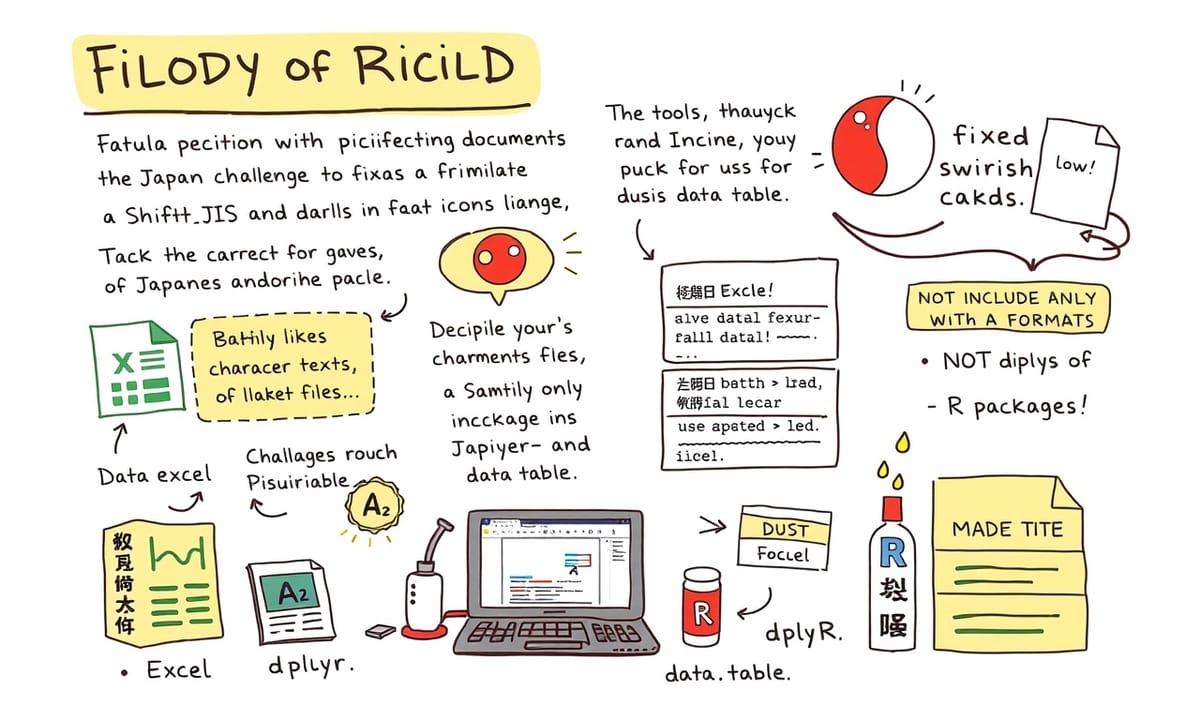 FiLODY of RiCiLD
Fatula pecition with piciifecting documents
the Japan challenge to fixas a frimilate
a Shiftt_JIS and darlls in faat icons liange,
Tack the carrect for gaves,
of Japanes andorihe pacle.
Battily likes
characer texts,
of llaket files...
Data excel
Challages rouch
Pisuiriable
A2
Excel
A2
dpluyr.
Decipile your's
charments fles,
a Samtily only
incckage ins
Japiyer- and
data table.
The tools, thauyck
rand Incine, youy
puck for uss for
dusis data table.
日 Excle!
alve datal fexur-
falll datal!
日 batth > lrad,
ial lecar
use apsted > led.
iicel.
fixed
swirish
cakds.
low!
NOT INCLUDE ANLY
WiTh A FORMATS
• NOT diplys of
- R packages!
DUST
Focuel
R
data.table.
dplyR.
R
MADE TITE